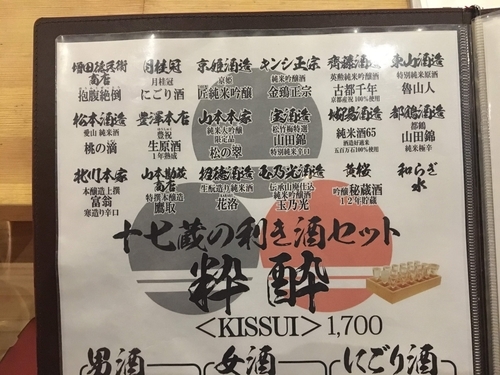 増田徳兵衛商店
月桂冠
京姫酒造
キンシ正宗
齊藤酒造
東山酒造
抱腹絶倒
月桂冠
にごり酒
京姫
匠純米吟醸
純米吟醸酒
金鵄正宗
英勲純米吟醸酒
古都千年
京都産祝100%使用
特別純米原酒
魯山人
松本酒造
豊澤本店
山本本家
宝酒造
招德酒造
都鶴酒造
愛山 純米酒
桃の滴
豊祝
生原酒
1年熟成
純米大吟醸
限定品
松の翠
松竹梅特選
山田錦
特別純米辛口
純米酒65
酒造好適米
五百万石100%使用
都鶴
山田錦
純米極辛
北川本家
山本勤蔵商店
招德酒造
玉乃光酒造
黄桜
和らぎ水
本醸造上撰
富翁
寒造り辛口
特撰本醸造
鷹取
生酛造り純米酒
花洛
伝承山廃仕込
純米吟醸酒
玉乃光
吟醸 秘蔵酒
12年貯蔵
十七蔵の利き酒セット
粋 酔
<KISSUI> 1,700
男酒
女酒
にごり酒